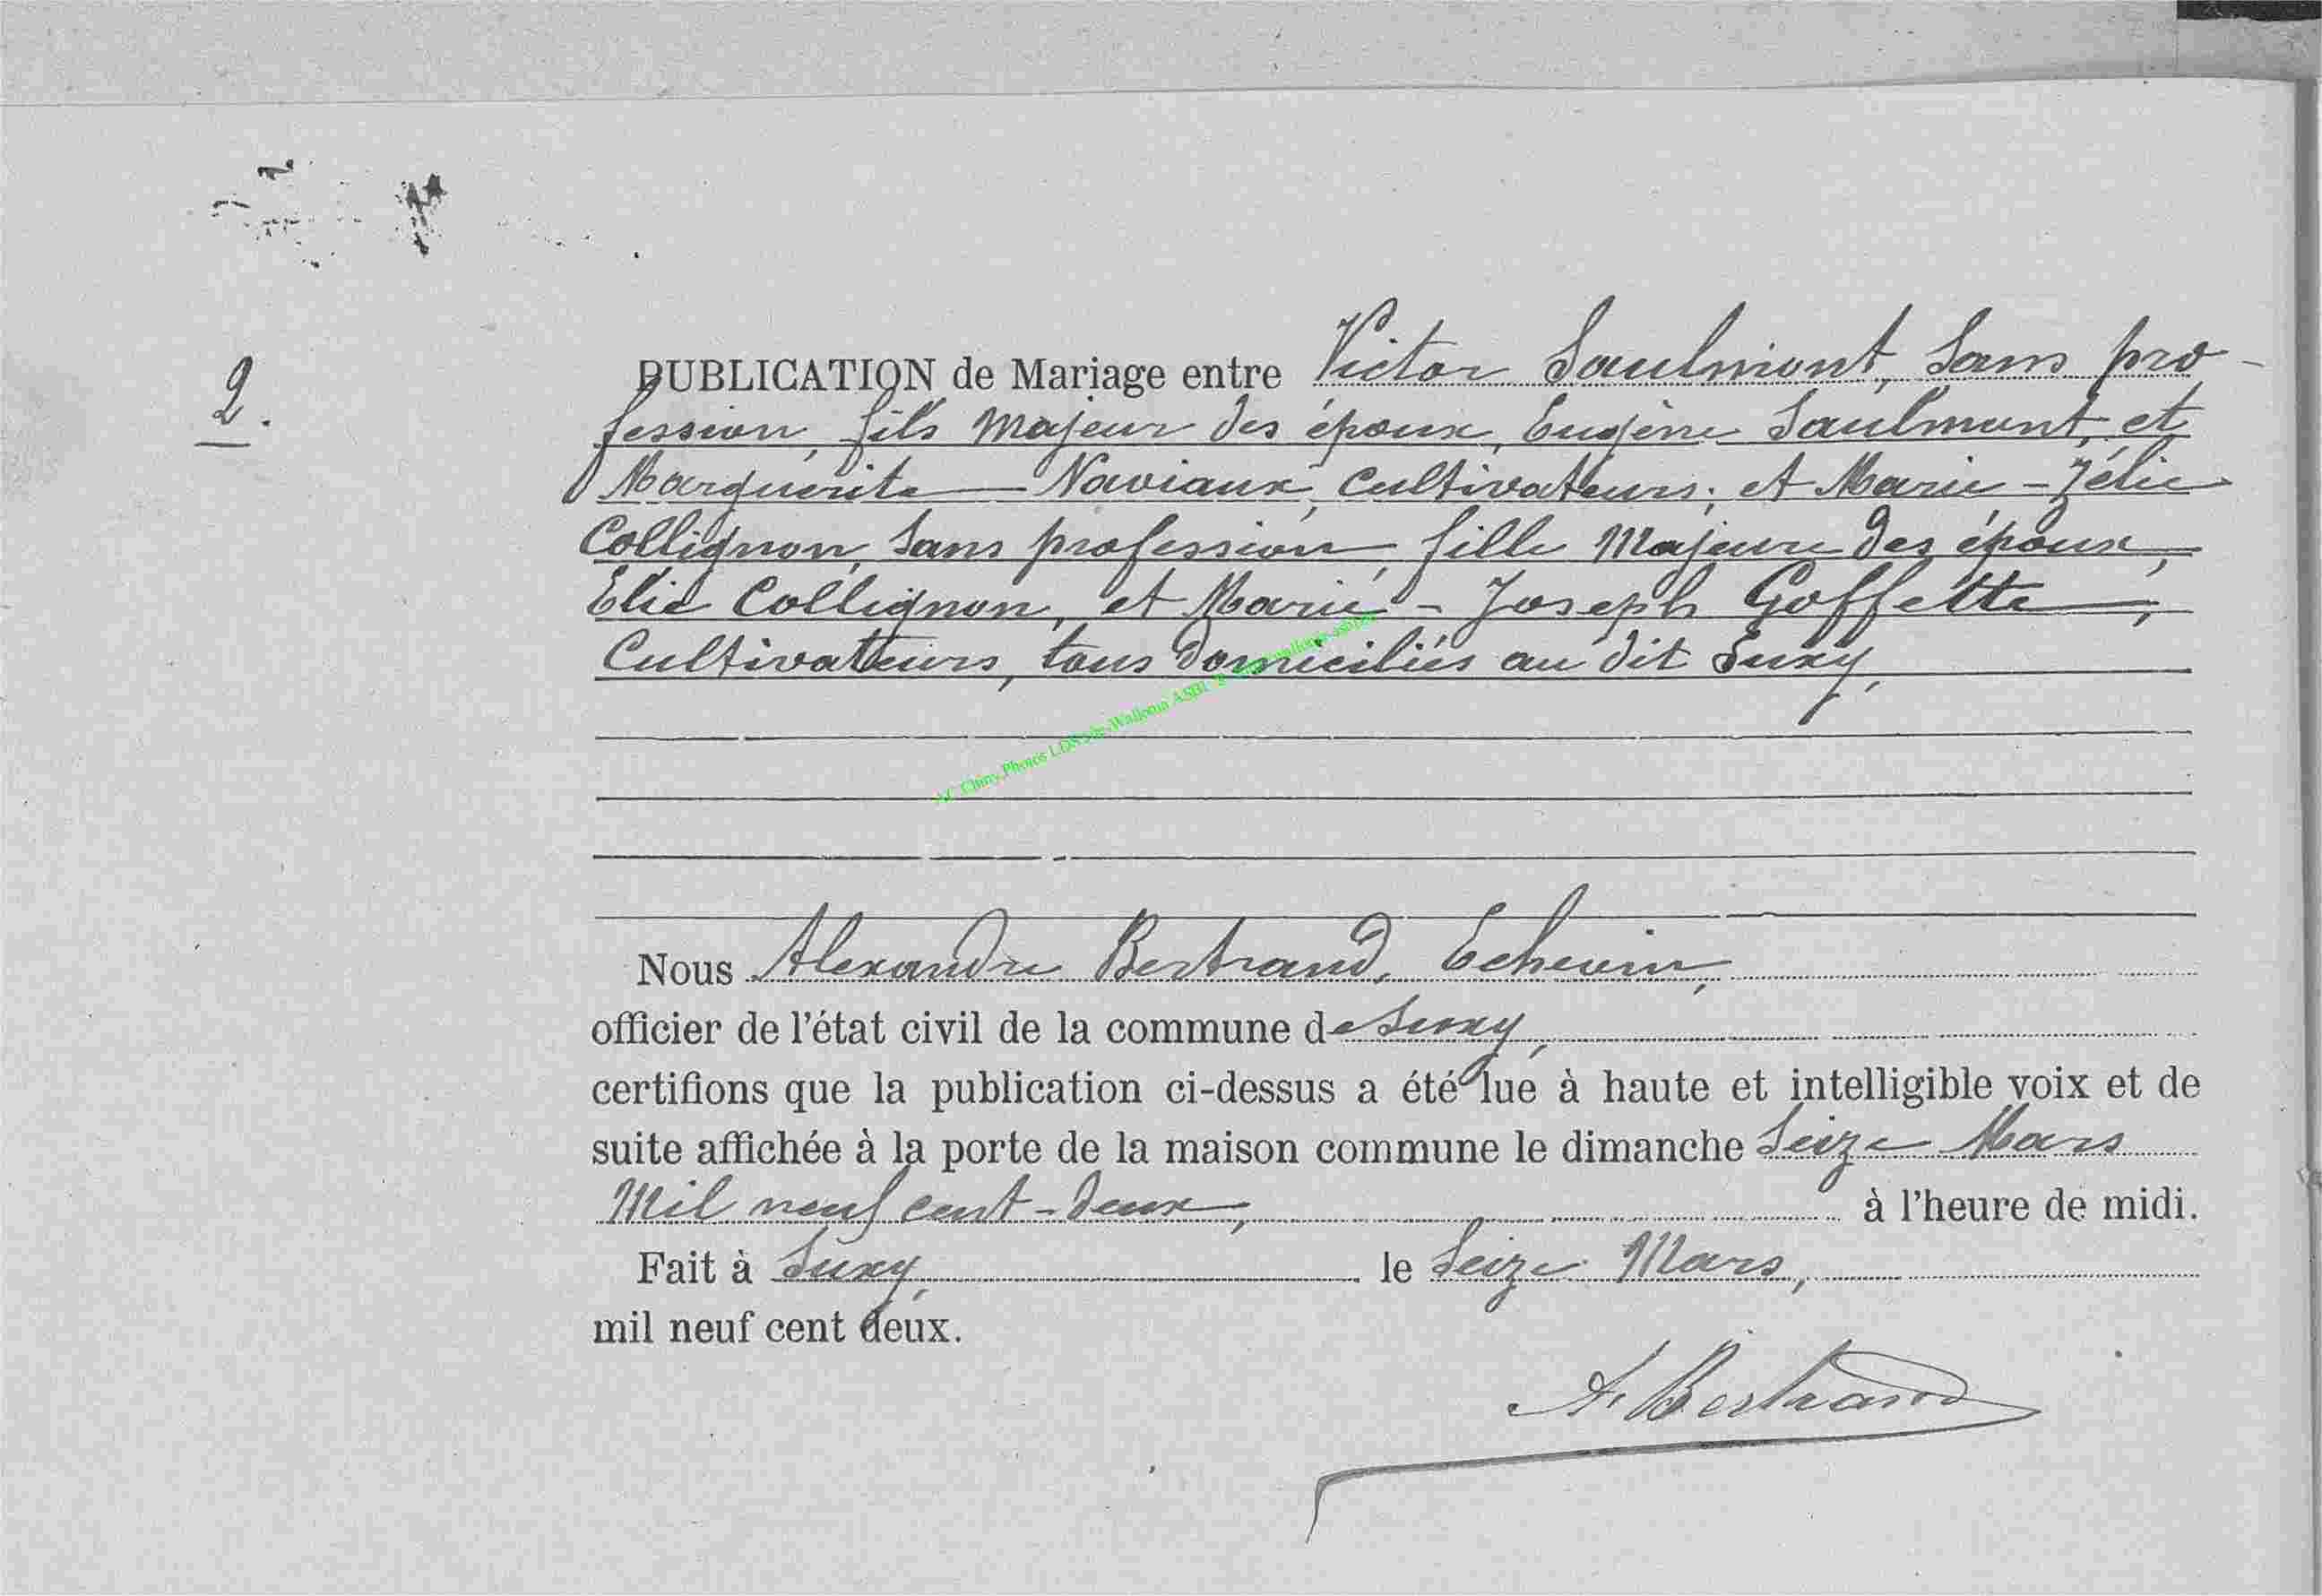 2.
PUBLICATION de Mariage entre Victor Saulmont, Sans pro-
fession, fils Majeur des époux, Eugène Saulmont, et
Marguerite Naviaux, Cultivateurs; et Marie-Zélie
Collignon, Sans profession, fille Majeure des époux,
Elie Collignon, et Marie-Joseph Goffette,
Cultivateurs, tous domiciliés au dit Suxy,
AC Chiny Photos Wallonia ASBL
Nous Alexandre Bertrand, Echevin,
officier de l'état civil de la commune de Suxy,
certifions que la publication ci-dessus a été lue à haute et intelligible voix et de
suite affichée à la porte de la maison commune le dimanche Seize Mars
Mil neuf cent-deux, à l'heure de midi.
Fait à Suxy, le Seize Mars,
mil neuf cent deux.
A. Bertrand